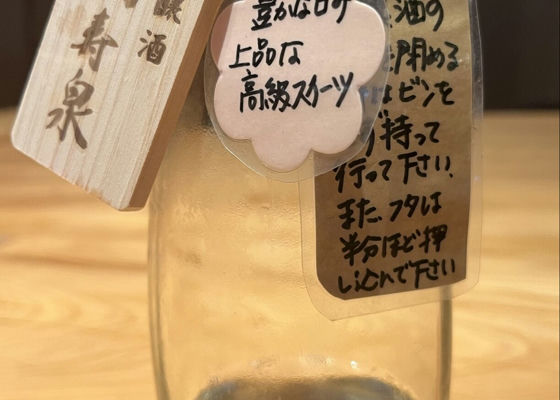 醸酒
寿泉
豊かな甘み
上品な
高級スイーツ
酒の
閉める
はビンを
持って
行って下さい。
また、フタは
半分ほど押
し込んで下さい